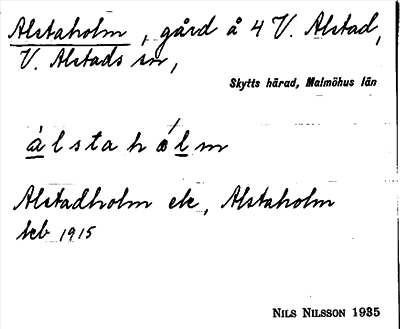 Alstaholm, gård å 4 V. Alstad,
V. Alstads sn,
Skytts härad, Malmöhus län
àlstahólm
Alstadholm ek, Alstaholm
teb 1915
NILS NILSSON 1935